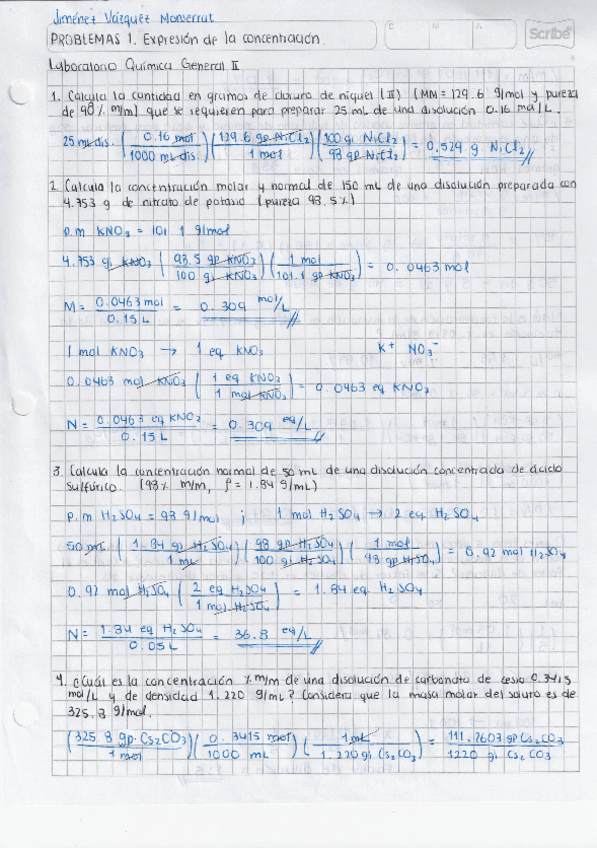 Jiménez Vázquez Monserrat
PROBLEMAS 1. Expresión de la concentración.
D M A
Scribe
Laboratorio Química General II
1. Calcula la cantidad en gramos de cloruro de níquel (II) (MM = 129.6 g/mol y pureza
de 98% m/m) que se requieren para preparar 25 mL de una disolución 0.16 mol/L.
25 mL dis. (0.16 mol / 1000 mL dis) (129.6 gp NiCl2 / 1 mol) (100 gi NiCl2 / 98 gp NiCl2) = 0.529 g NiCl2
2. Calcula la concentración molar y normal de 150 mL de una disolución preparada con
4.753 g de nitrato de potasio (pureza 98.5%)
p.m KNO3 = 101.1 g/mol
4.753 gi KNO3 (98.5 gp KNO3 / 100 gi KNO3) (1 mol / 101.1 gp KNO3) = 0.0463 mol
M = 0.0463 mol / 0.15 L = 0.309 mol/L
1 mol KNO3 → 1 eq KNO3 K+ NO3-
0.0463 mol KNO3 (1 eq KNO3 / 1 mol KNO3) = 0.0463 eq KNO3
N = 0.0463 eq KNO3 / 0.15 L = 0.309 eq/L
3. Calcula la concentración normal de 50 mL de una disolución concentrada de ácido
sulfúrico. (98% m/m, ρ = 1.84 g/mL)
p.m H2SO4 = 98 g/mol ; 1 mol H2SO4 → 2 eq H2SO4
50 mL (1.84 gi H2SO4 / 1 mL) (98 gp H2SO4 / 100 gi H2SO4) (1 mol / 98 gp H2SO4) = 0.92 mol H2SO4
0.92 mol H2SO4 (2 eq H2SO4 / 1 mol H2SO4) = 1.84 eq H2SO4
N = 1.84 eq H2SO4 / 0.05 L = 36.8 eq/L
4. ¿Cuál es la concentración % m/m de una disolución de carbonato de cesio 0.3415
mol/L y de densidad 1.220 g/mL? Considera que la masa molar del soluto es de
325.8 g/mol.
(325.8 gp Cs2CO3 / 1 mol) (0.3415 mol / 1000 mL) (1 mL / 1.220 gi Cs2CO3) = 111.2607 gp Cs2CO3 / 1220 gi Cs2CO3